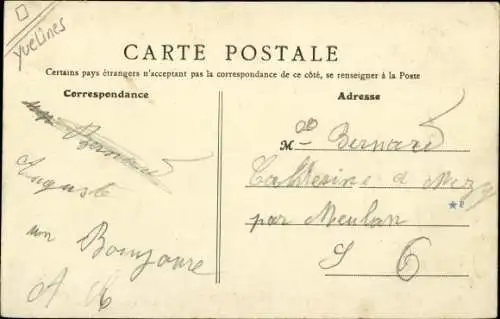 yvelines
CARTE POSTALE
Certains pays étrangers n'acceptant pas la correspondance de ce côté, se renseigner à la Poste
Correspondance
Adresse
Bernard
Auguste
un Bonjoure
A
M Bernard
à Mezy
par Meulan
S O